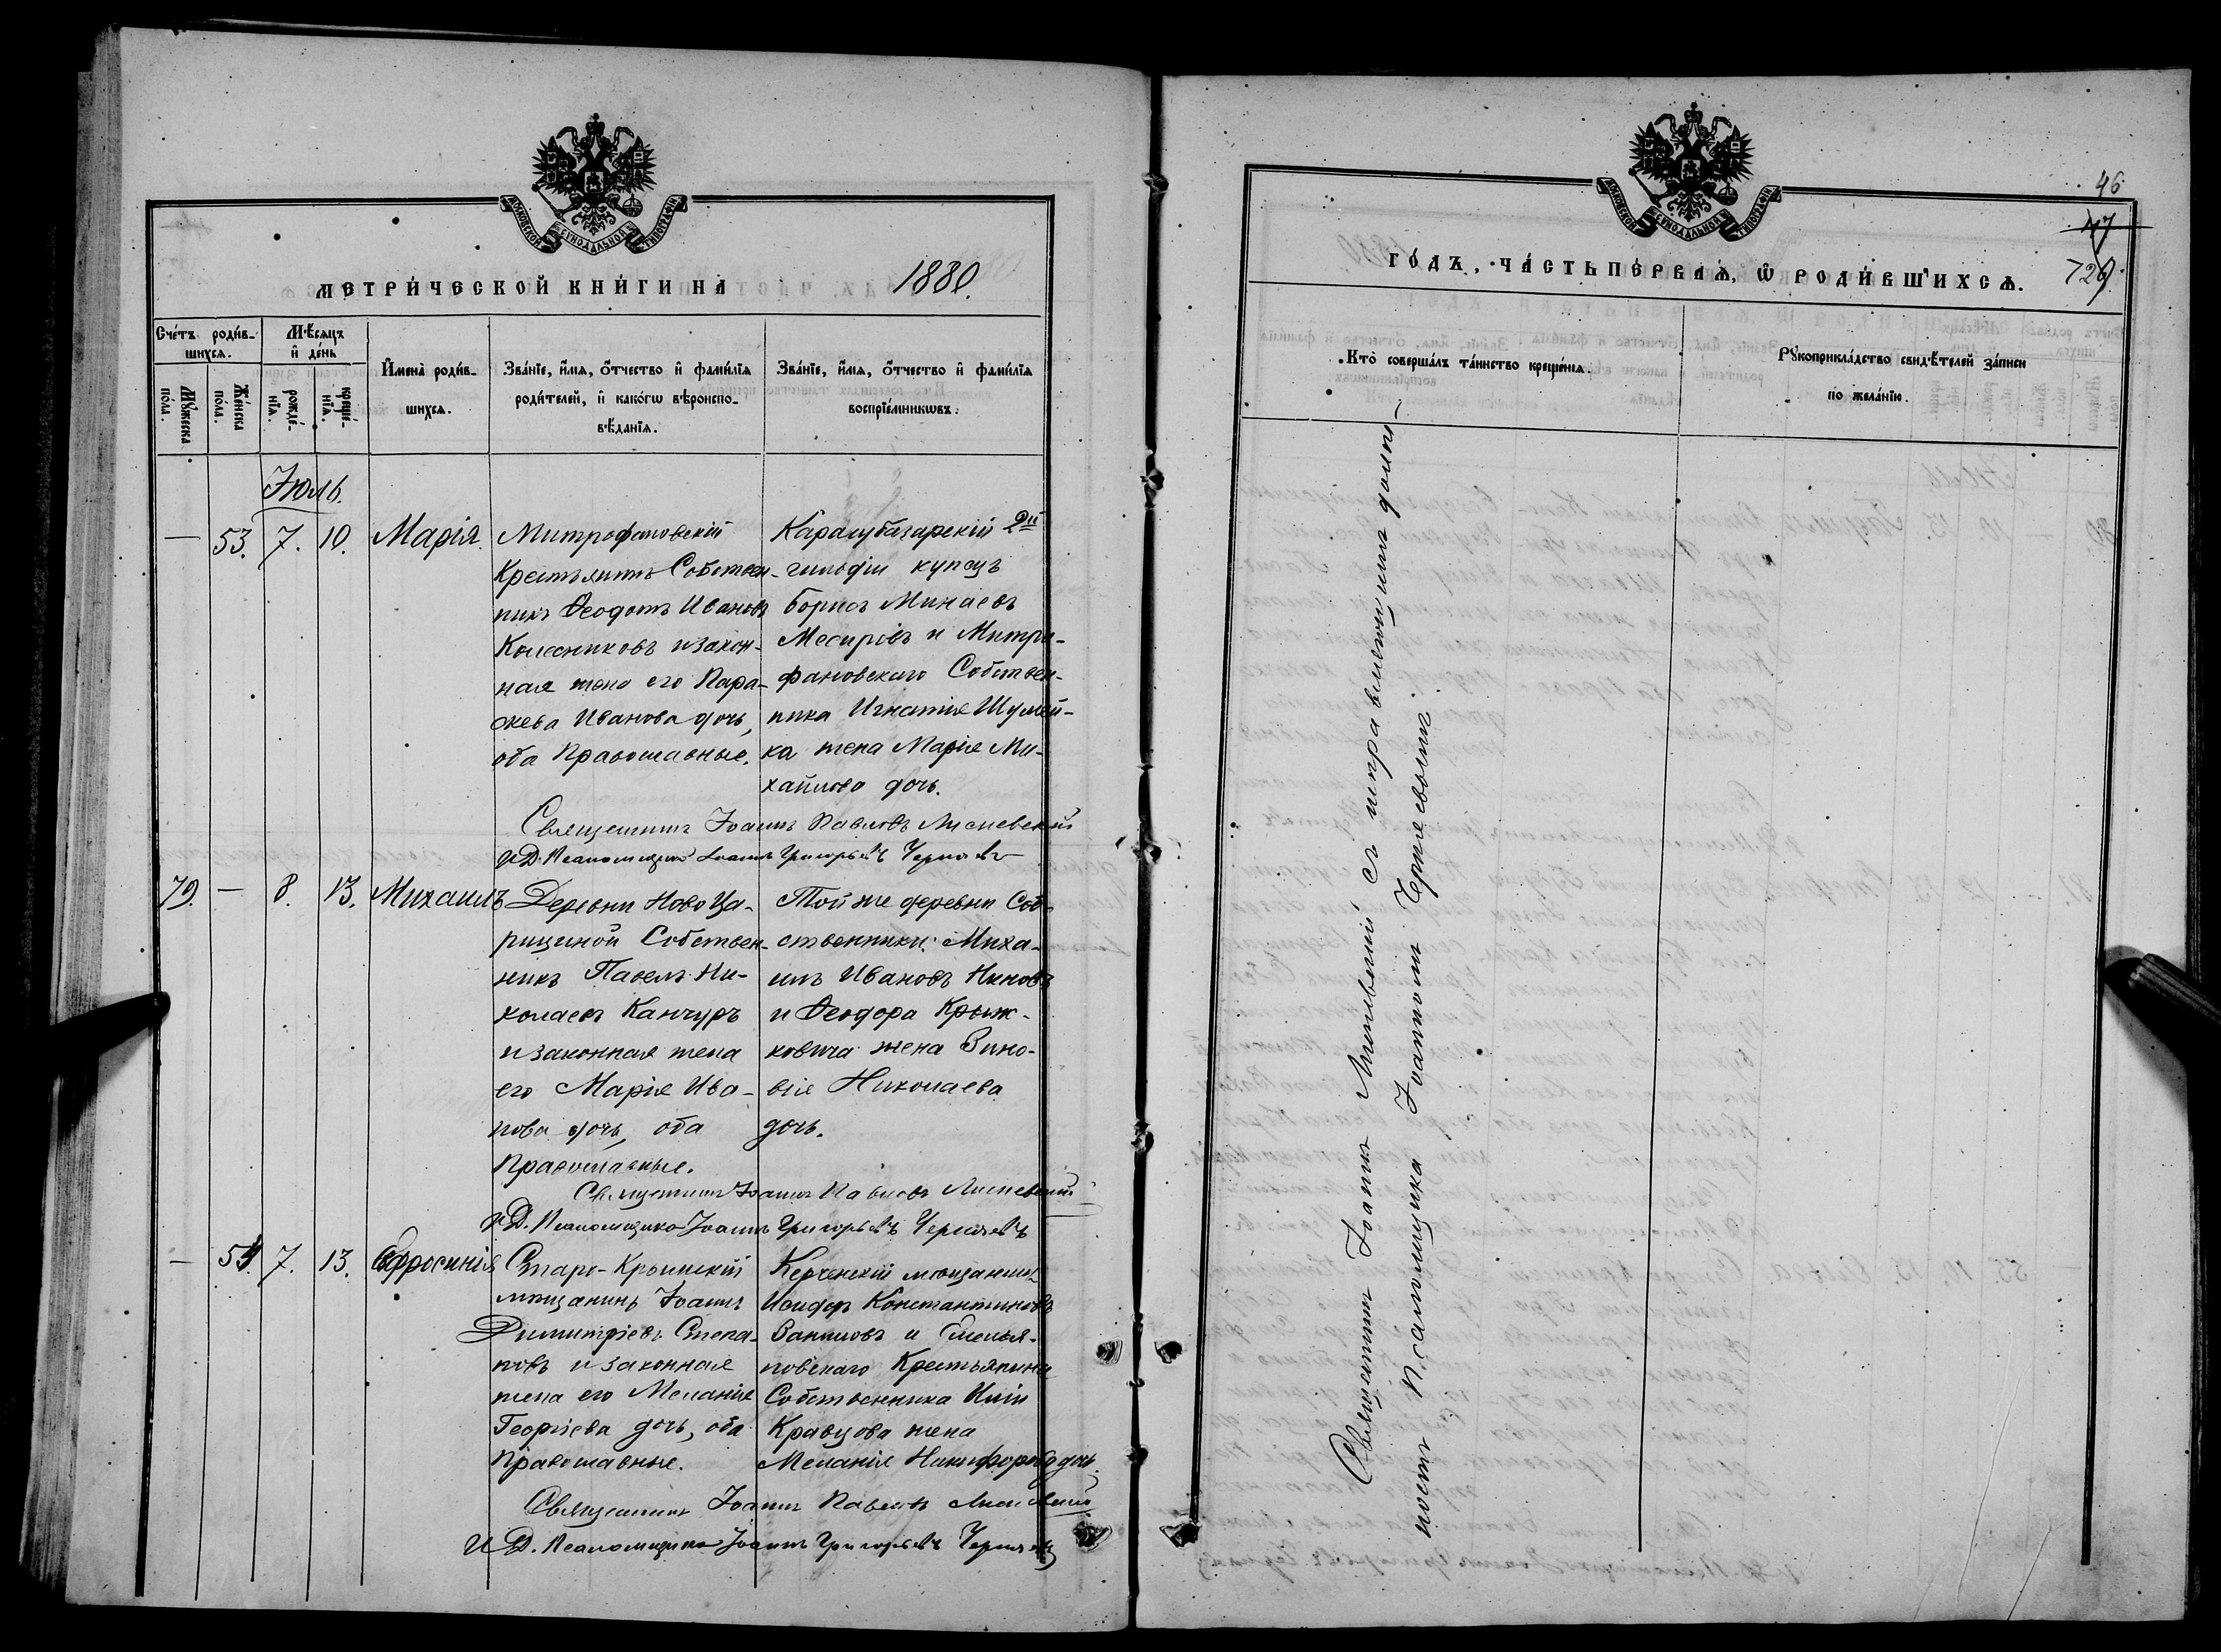 МОСКОВСКОЙ СѴНОДАЛЬНОЙ ТИПОГРАФІИ
МЕТРИ́ЧЕСКОЙ КНИ́ГИ НА 1880.
Сче́тъ роди́в-
шихся.
Мѣ́сяцъ
и҆ де́нь
Мꙋ́жеска
по́ла.
Же́нска
по́ла.
рожде́-
нїѧ.
креще́-
нїѧ.
И҆мена̀ роди́в-
шихсѧ.
Зва́нїе, и҆́мѧ, ѻ҆́тчество и҆ фами́лїѧ
роди́телей, и҆ како́гѡ вѣроиспо-
вѣ́данїѧ.
Зва́нїе, и҆́мѧ, ѻ҆́тчество и҆ фами́лїѧ
воспрїе́мникѡвъ.
Іюль.
— 53. 7. 10. Марія.
Митрофановскій
Крестьянинъ Собствен-
никъ Ѳеодотъ Ивановъ
Колесниковъ и закон-
ная жена его Пара-
скева Иванова дочь,
оба Православные.
Карасубазарскій 2й
гильдіи купецъ
Борисъ Минаевъ
Месировъ и Митро-
фановскаго Собствен-
ника Игнатія Шумей-
ка жена Марія Ми-
хайлова дочь.
Священникъ Іоаннъ Павловъ
И.Д. Псаломщика Іоаннъ Григорьевъ Черняевъ
79. — 8. 13. Михаилъ
Деревни Ново Ца-
рициной Собствен-
никъ Павелъ Ни-
колаевъ Канчуръ
и законная жена
его Марія Ива-
нова дочь, оба
Православные.
Той же деревни Соб-
ственники: Миха-
илъ Ивановъ Ниновъ
и Ѳеодора Крыж-
ковича жена Зино-
вія Николаева
дочь.
Священникъ Іоаннъ Павловъ
И.Д. Псаломщика Іоаннъ Григорьевъ Черняевъ
— 54. 7. 13. Ефросинія
Старо-Крымскій
мѣщанинъ Іоаннъ
Димитріевъ Степа-
новъ и законная
жена его Меланія
Георгіева дочь, оба
Православные.
Керченскій мѣщанинъ
Исидоръ Константиновъ
и Емелья-
новскаго Крестьянина
Собственника Иліи
Кравцова жена
Меланія Никифорова дочь.
Священникъ Іоаннъ Павловъ
И.Д. Псаломщика Іоаннъ Григорьевъ Черняевъ
МОСКОВСКОЙ СѴНОДАЛЬНОЙ ТИПОГРАФІИ
46
47
729
ГО́ДЪ, ЧА́СТЬ ПЕ́РВАѦ, Ѡ҆ РОДИ́ВШИХСѦ.
Кто̀ соверша́лъ та́инство креще́нїѧ.
Рꙋкоприкла́дство свидѣ́телей за́писи
по жела́нїю.
Священникъ Іоаннъ съ исправляющимъ долж-
ность Псаломщика Іоанномъ Черняевымъ.